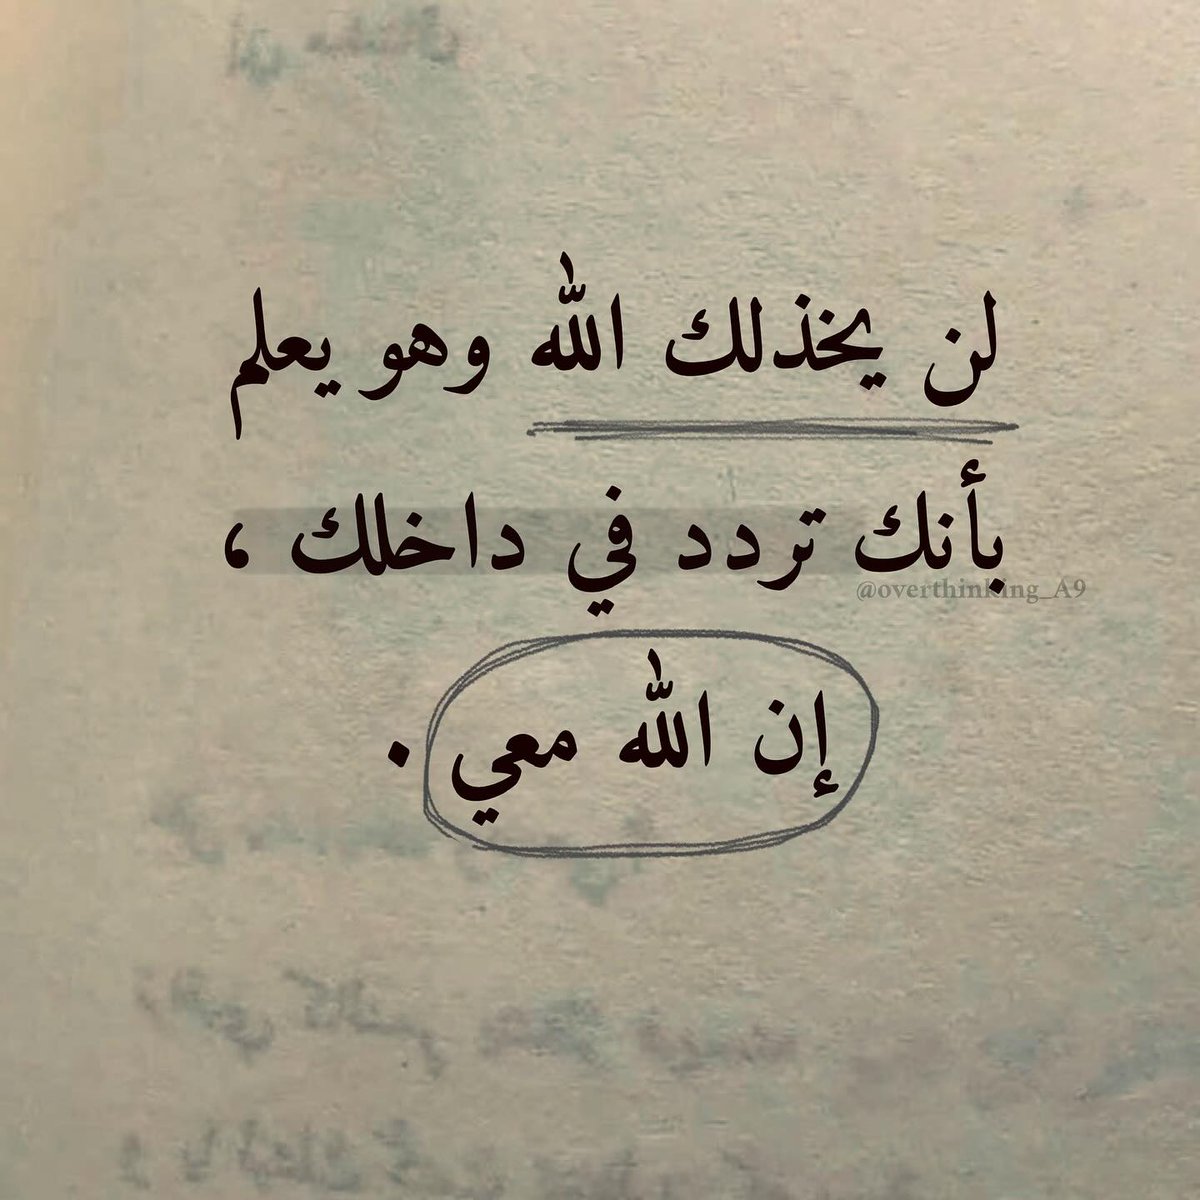 لن يخذلك الله وهو يعلم
بأنك تردد في داخلك ،
@overthinking_A9
إن الله معي .